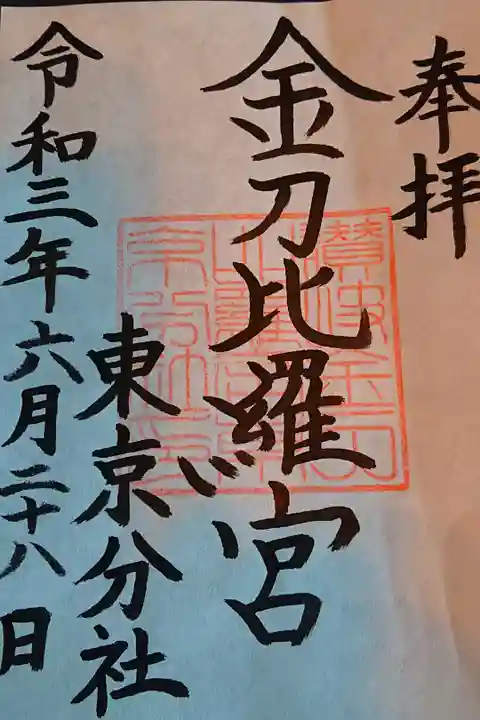 奉拝
金刀比羅宮
東京分社
令和三年六月二十八日